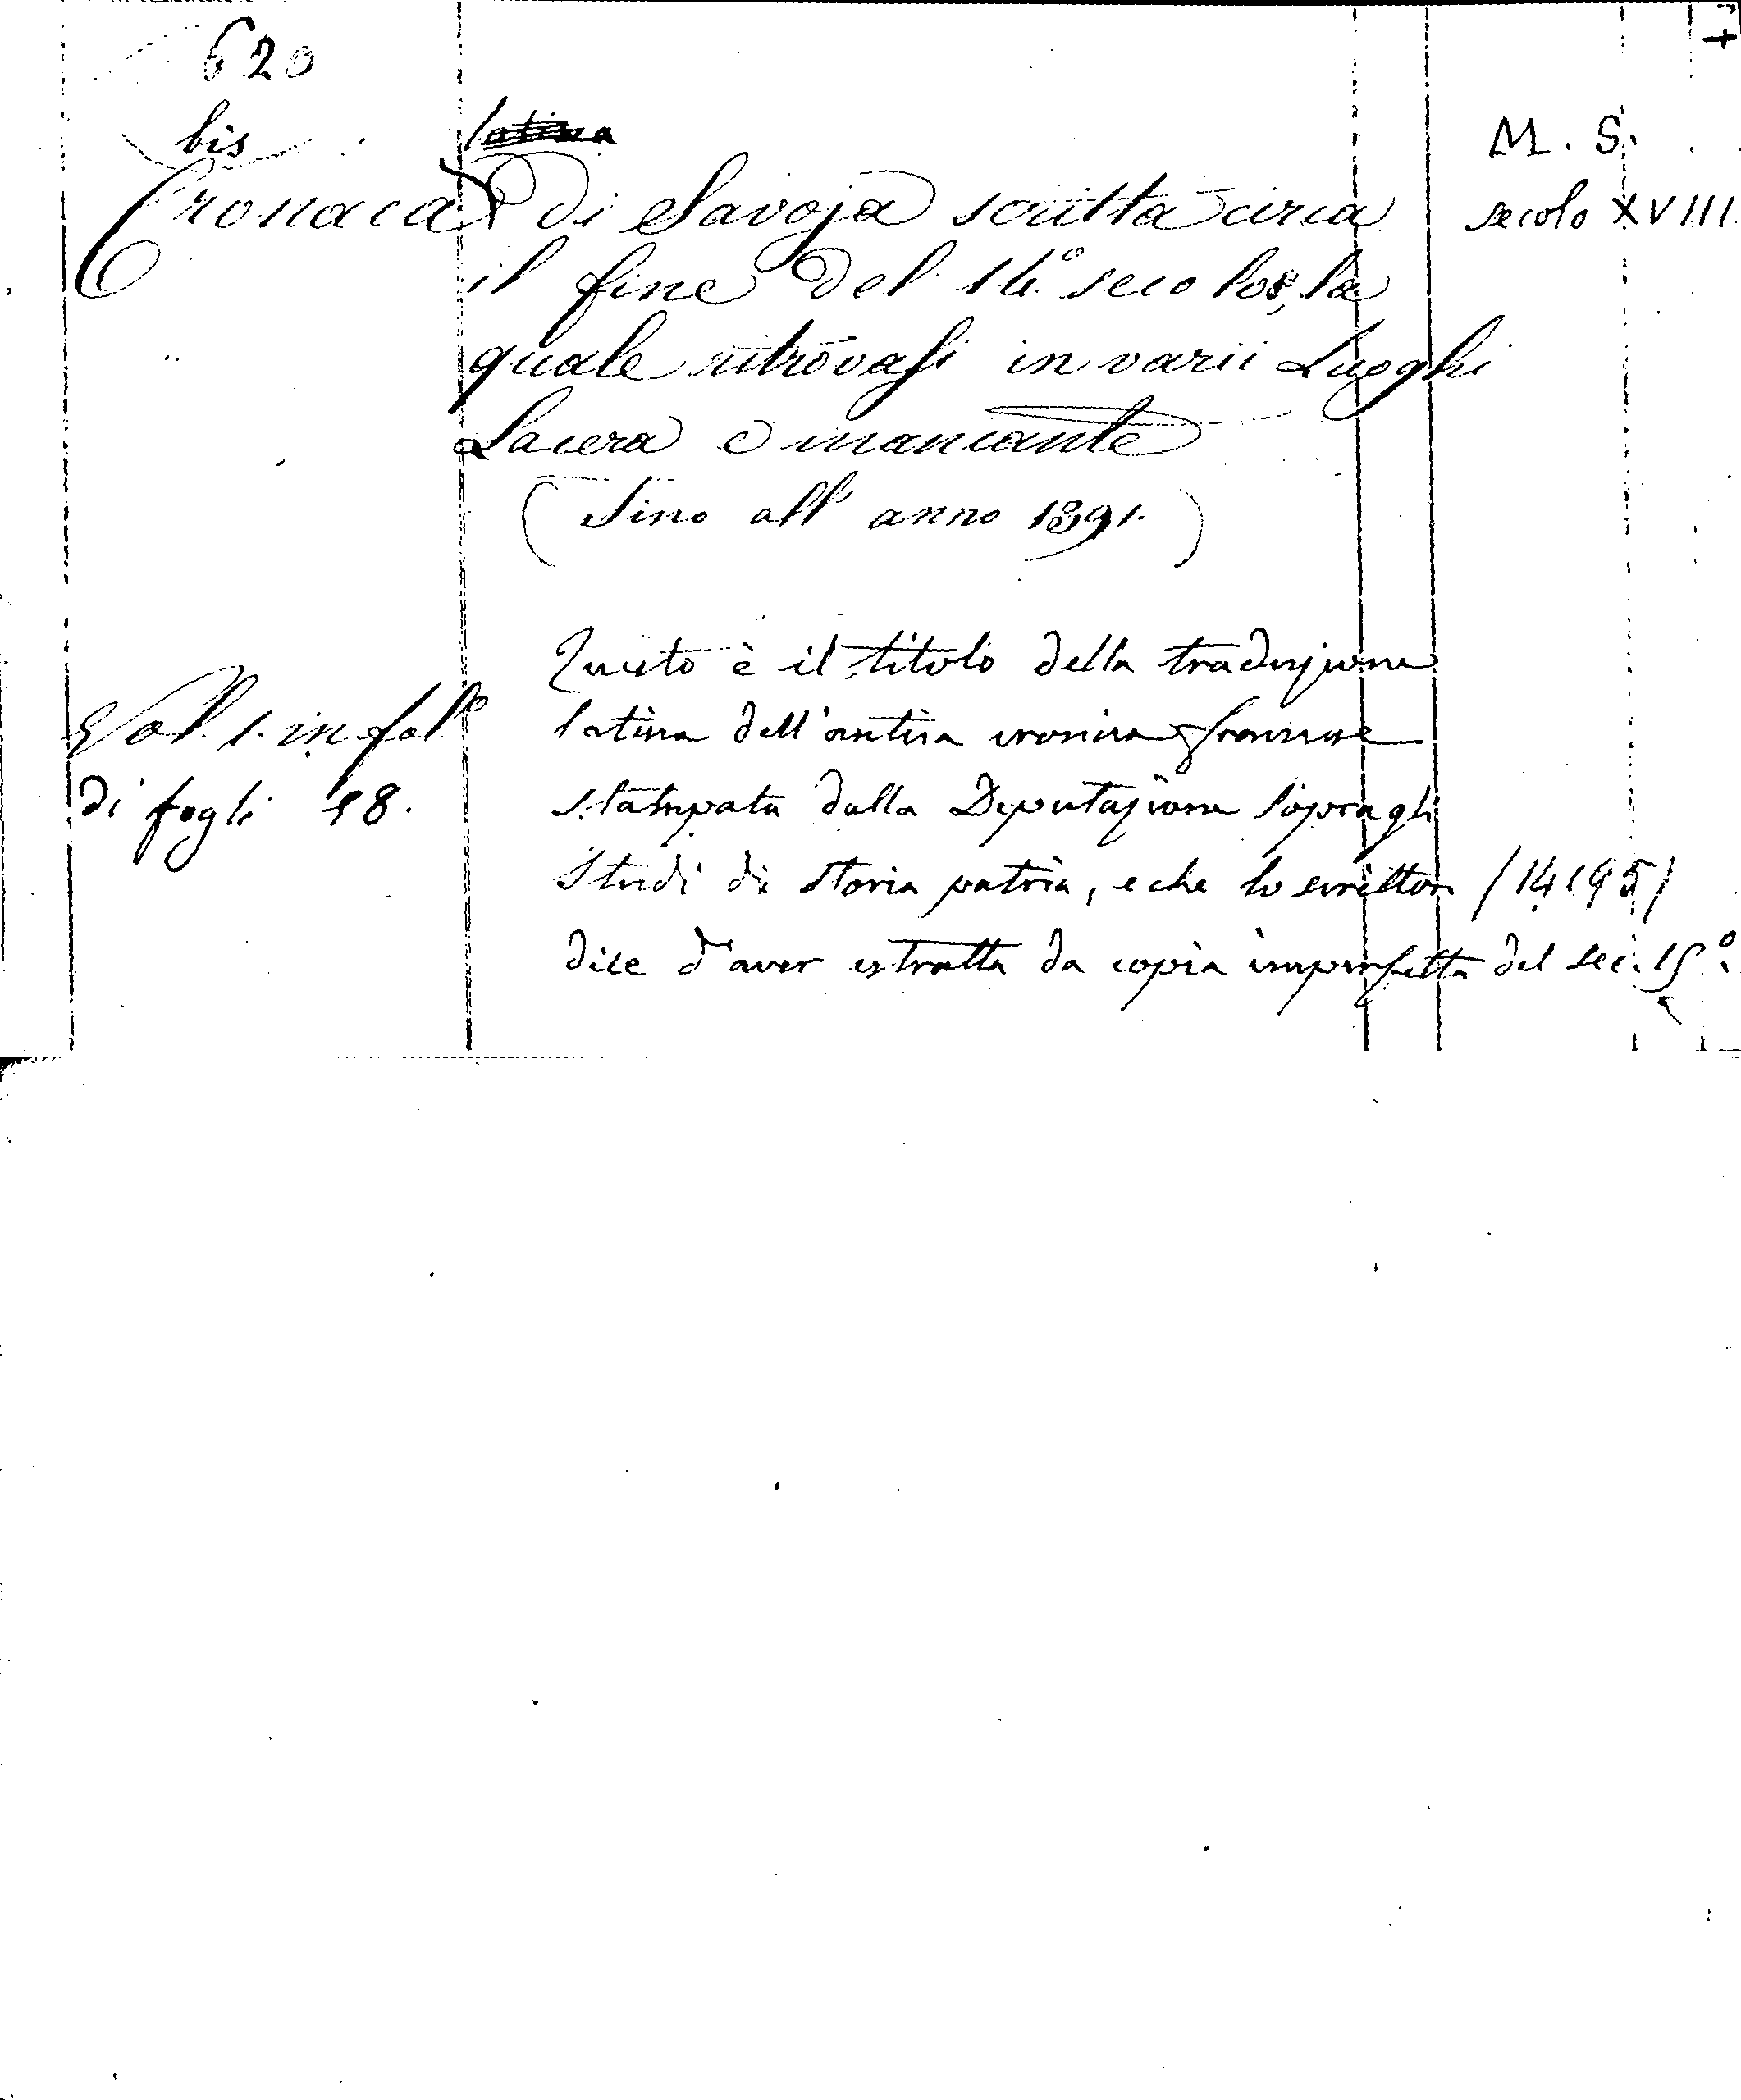 620
bis
latina
M. S.
Cronaca di Savoja scritta circa
secolo XVIII
il fine del 14.° secolo, la
quale ritrovasi in varii Luoghi
Lacera e mancante
(Sino all' anno 1391.)
Questo è il titolo della traduzione
latina dell'antica cronica francese
Vol. 1. in fol.°
stampata dalla Deputazione sopra gli
di fogli 48.
studi di storia patria, e che lo scrittore /14195/
dice d'aver estratta da copia imperfetta del sec. 15°.